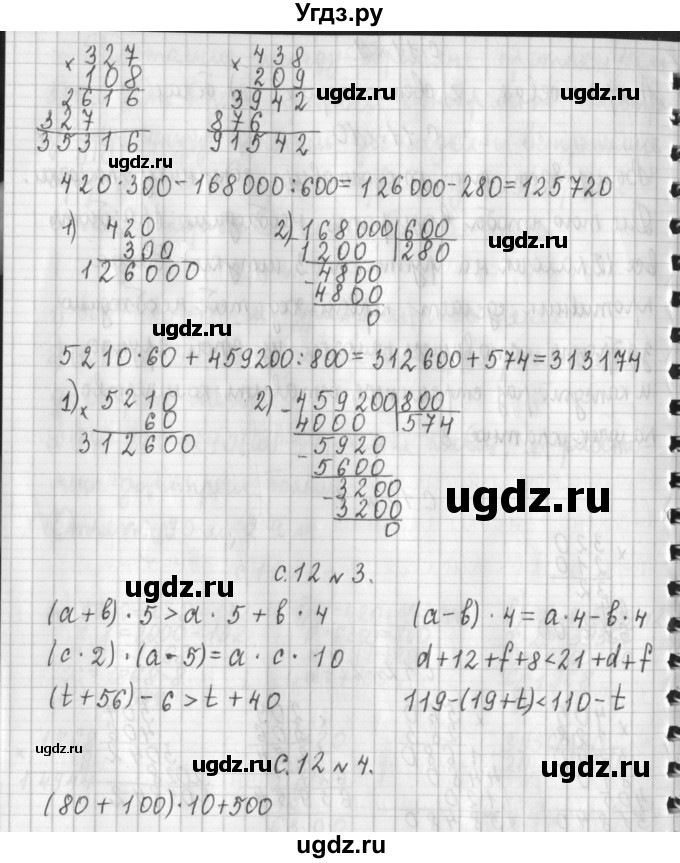 Угдз.ру
× 327   × 438
108   209
2616   3942   ugdz.ru
327   876
35316   91542
ugdz.ru
420·300-168000:600=126000-280=125720
1) 420   2) 168000|600   ugdz.ru
300   1200   280
126000   - 4800
4800
0
ugdz.ru
5210·60+459200:800=312600+574=313174
1) × 5210   2) - 459200|800
60   4000   574
312600   - 5920
5600
- 3200   ugdz.ru
3200
0
с.12 №3.
ugdz.ru
(a+b)·5>a·5+b·4   (a-b)·4=a·4-b·4
(c·2)·(a·5)=a·c·10   d+12+f+8<21+d+f
(t+56)-6>t+40   119-(19+t)<110-t
ugdz.ru   с.12 №4.   ugdz.ru
(80+100)·10+500
ugdz.ru